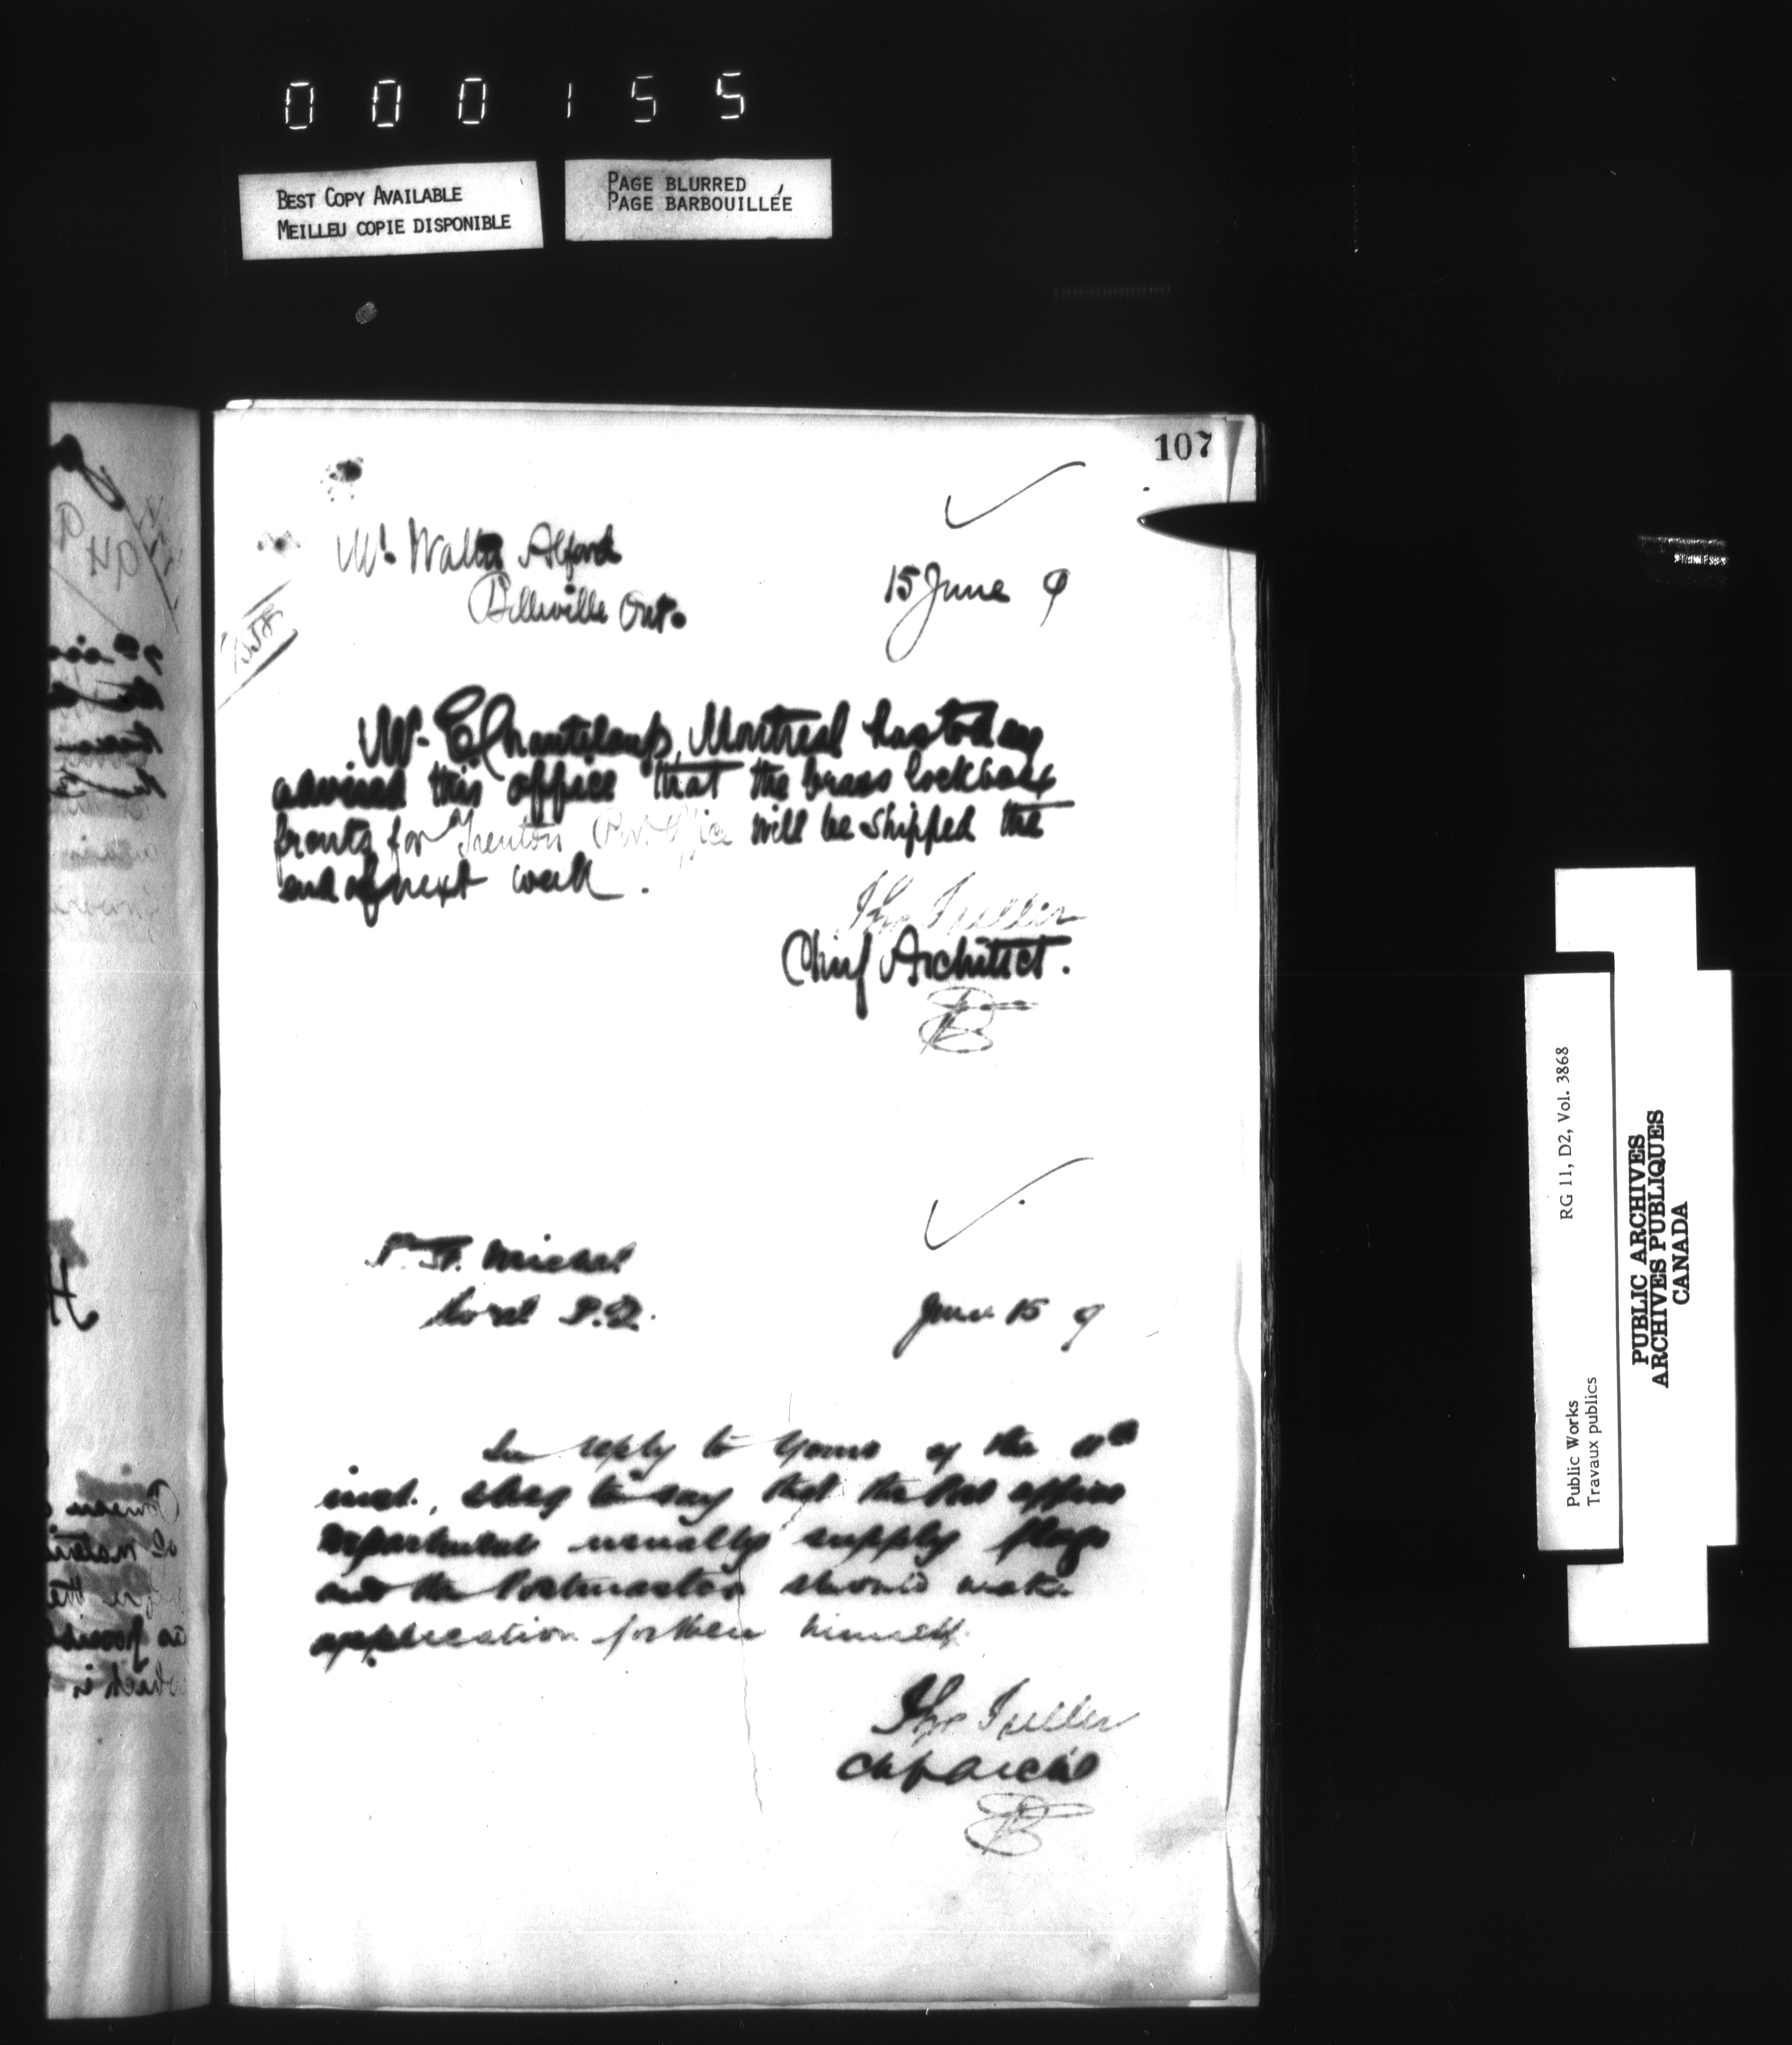 000155
BEST COPY AVAILABLE
MEILLEU COPIE DISPONIBLE
PAGE BLURRED
PAGE BARBOUILLÉE
107
Mr. Walter Alford
Belleville Ont.
15 June 9
Mr. E Chanteloup, Montreal has today
advised this office that the brass lockbox
fronts for Trenton Post Office will be shipped the
end of next week.
Thos Fuller
Chief Architect.
Michel
Sorel P.Q.
June 15 9
In reply to yours of the 11th
inst., I beg to say that the Post office
Department usually supply flags
and the Postmaster should make
application for them himself.
Thos Fuller
Chf Archt
Public Works
Travaux publics
RG 11, D2, Vol. 3868
PUBLIC ARCHIVES
ARCHIVES PUBLIQUES
CANADA